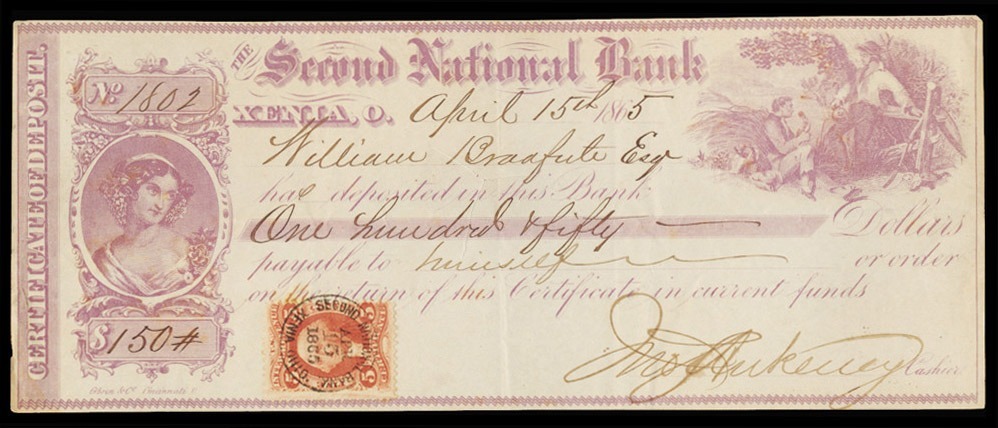 CERTIFICATE OF DEPOSIT.
No 1802
THE Second National Bank
XENIA, O. April 15th 1865
William Bradfute Esq
has deposited in this Bank
One hundred & fifty Dollars
payable to himself or order
on the return of this Certificate in current funds
$150#
SECOND NATIONAL BANK
APR
15
1865
XENIA OHIO
5 5
Jno Ankeney Cashier
Cincinnati O.